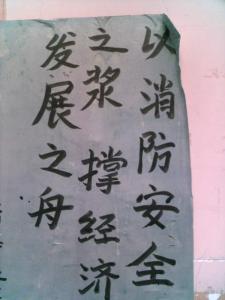 以消防安全
之浆 撑经济
发展之舟